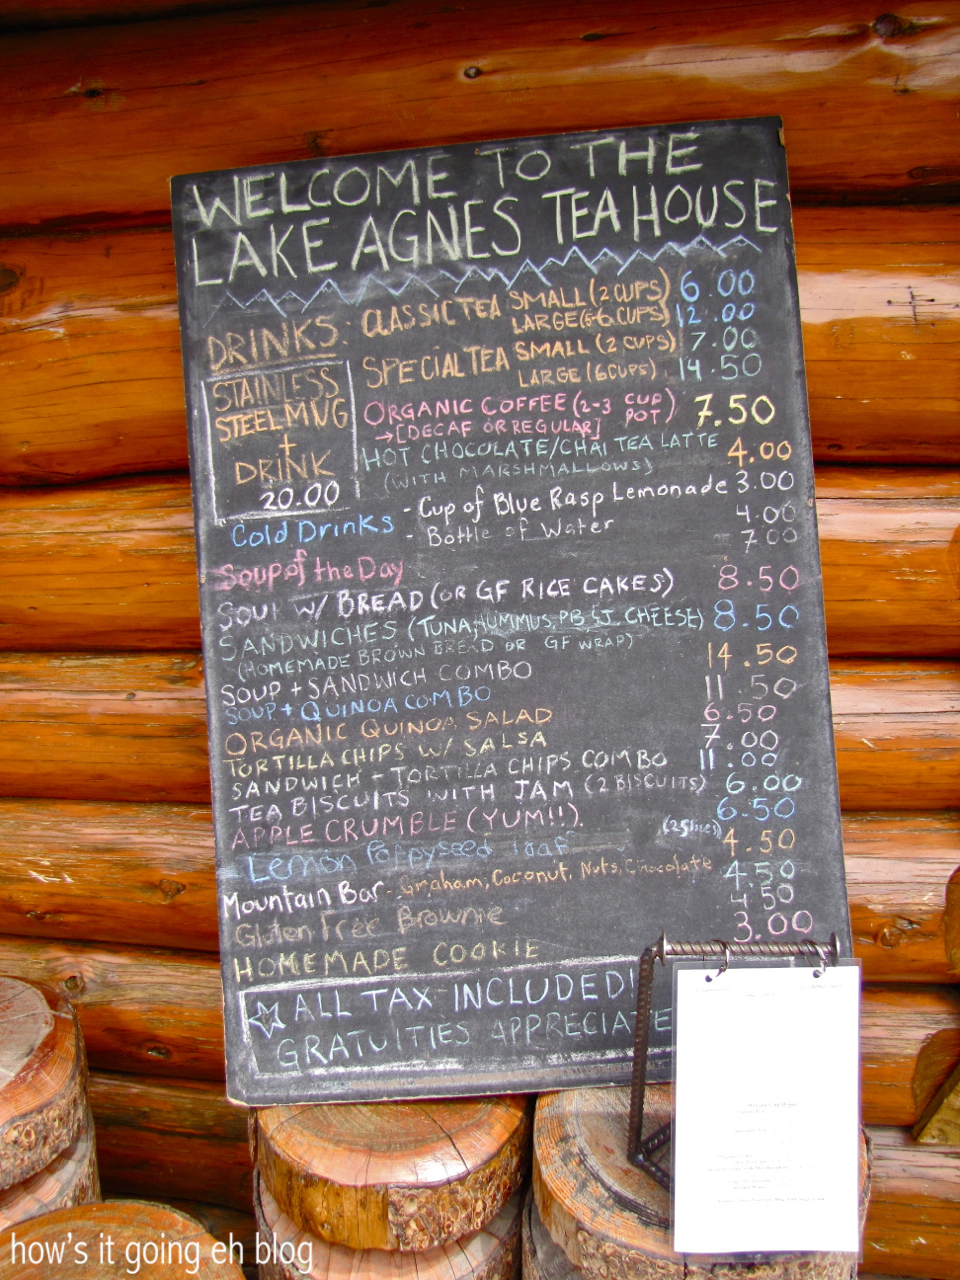 WELCOME TO THE
LAKE AGNES TEA HOUSE
DRINKS: CLASSIC TEA SMALL (2 CUPS) 6.00
LARGE (5-6 CUPS) 12.00
SPECIAL TEA SMALL (2 CUPS) 7.00
LARGE (6 CUPS) 14.50
STAINLESS
STEEL MUG
+
DRINK
20.00
ORGANIC COFFEE (2-3 CUP POT) 7.50
→[DECAF OR REGULAR]
HOT CHOCOLATE/CHAI TEA LATTE 4.00
(WITH MARSHMALLOWS)
Cold Drinks - Cup of Blue Rasp Lemonade 3.00
- Bottle of Water 4.00
Soup of the Day 7.00
SOUP W/ BREAD (OR GF RICE CAKES) 8.50
SANDWICHES (TUNA, HUMMUS, PB & J, CHEESE) 8.50
(HOMEMADE BROWN BREAD OR GF WRAP)
SOUP + SANDWICH COMBO 14.50
SOUP + QUINOA COMBO 11.50
ORGANIC QUINOA SALAD 6.50
TORTILLA CHIPS W/ SALSA 7.00
SANDWICH - TORTILLA CHIPS COMBO 11.00
TEA BISCUITS WITH JAM (2 BISCUITS) 6.00
APPLE CRUMBLE (YUM!!). 6.50
Lemon Poppyseed loaf (2 Slices) 4.50
Mountain Bar - Graham, Coconut, Nuts, Chocolate 4.50
Gluten Free Brownie 4.50
HOMEMADE COOKIE 3.00
ALL TAX INCLUDED!
GRATUITIES APPRECIATE
how's it going eh blog